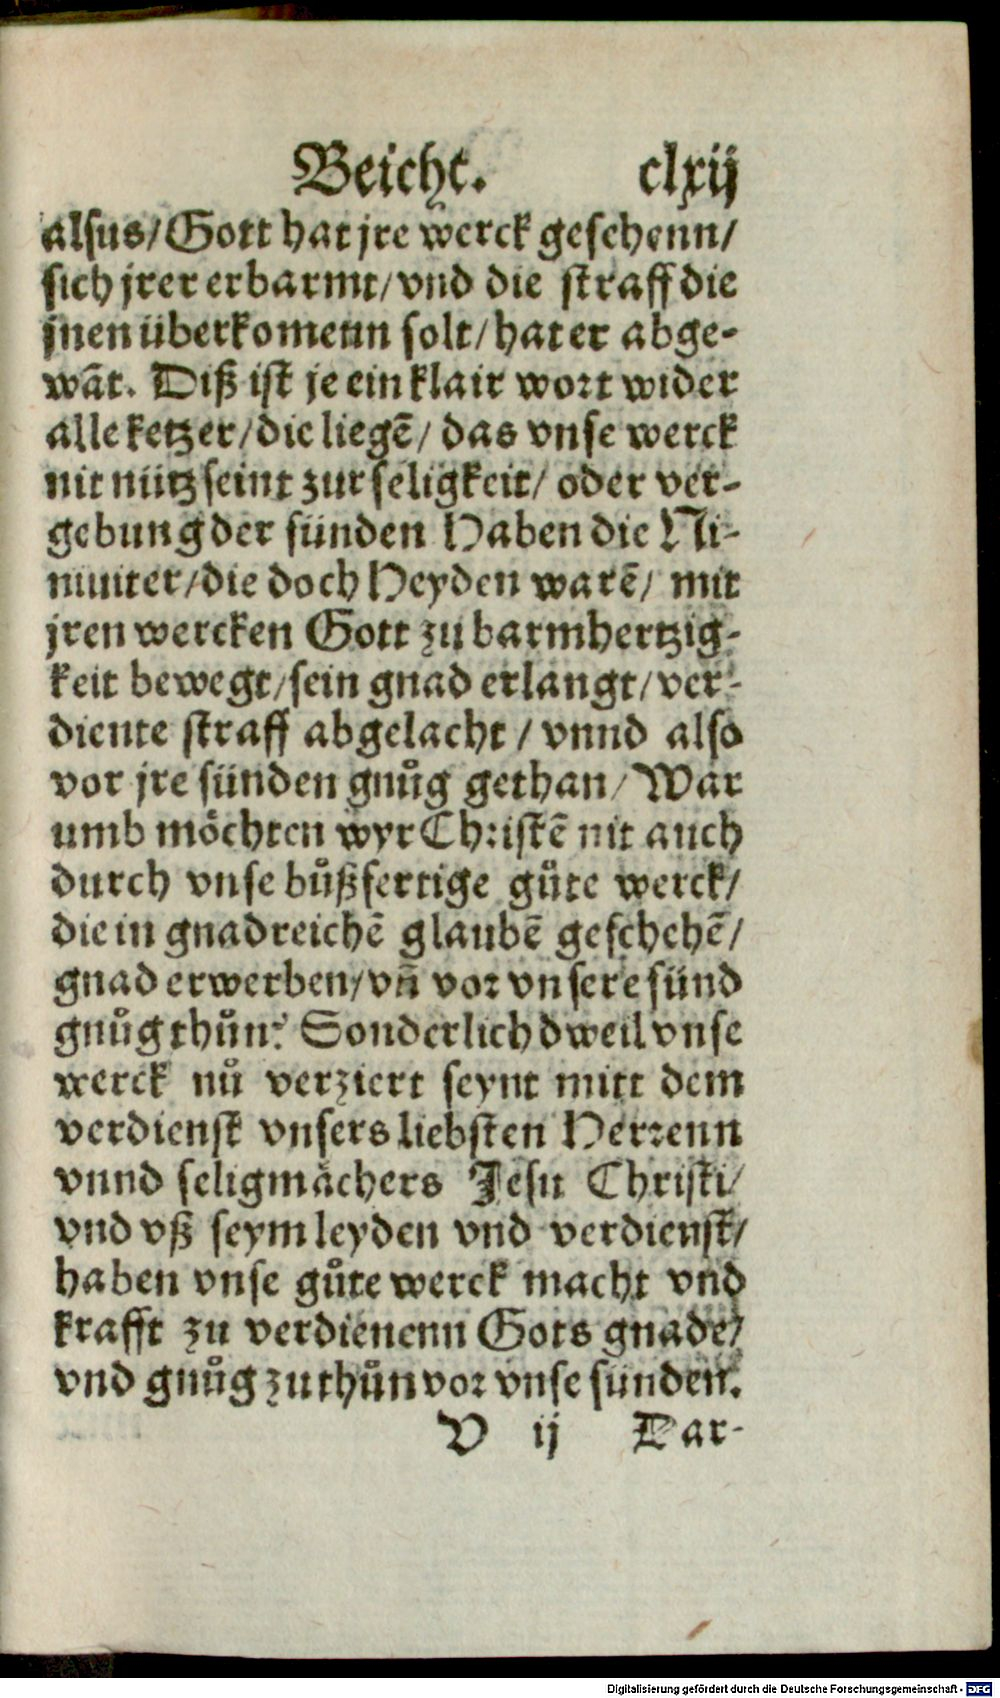 Beicht. clxij
alsus/ Gott hat jre werck gesehenn/
sich jrer erbarmt/ vnd die straff die
jnen überkomenn solt/ hat er abge-
wāt. Diß ist je ein klair wort wider
alle ketzer/ die liegē/ das vnse werck
nit nütz seint zur seligkeit/ oder ver-
gebung der sünden Haben die Ni-
niuiter/ die doch Heyden warē/ mit
jren wercken Gott zu barmhertzig-
keit bewegt/ sein gnad erlangt/ ver-
diente straff abgelacht/ vnnd also
vor jre sünden gnůg gethan/ War
umb möchten wyr Christē nit auch
durch vnse bůßfertige gůte werck/
die in gnadreichē glaubē geschehē/
gnad erwerben/ vn̄ vor vnsere sünd
gnůg thůn? Sonderlich dweil vnse
werck nů verziert seynt mitt dem
verdienst vnsers liebsten Herrenn
vnnd seligmächers Jesu Christi/
vnd vß seym leyden vnd verdienst/
haben vnse gůte werck macht vnd
krafft zu verdienenn Gots gnade/
vnd gnůg zu thůn vor vnse sünden.
V ij Dar-
Digitalisierung gefördert durch die Deutsche Forschungsgemeinschaft - DFG